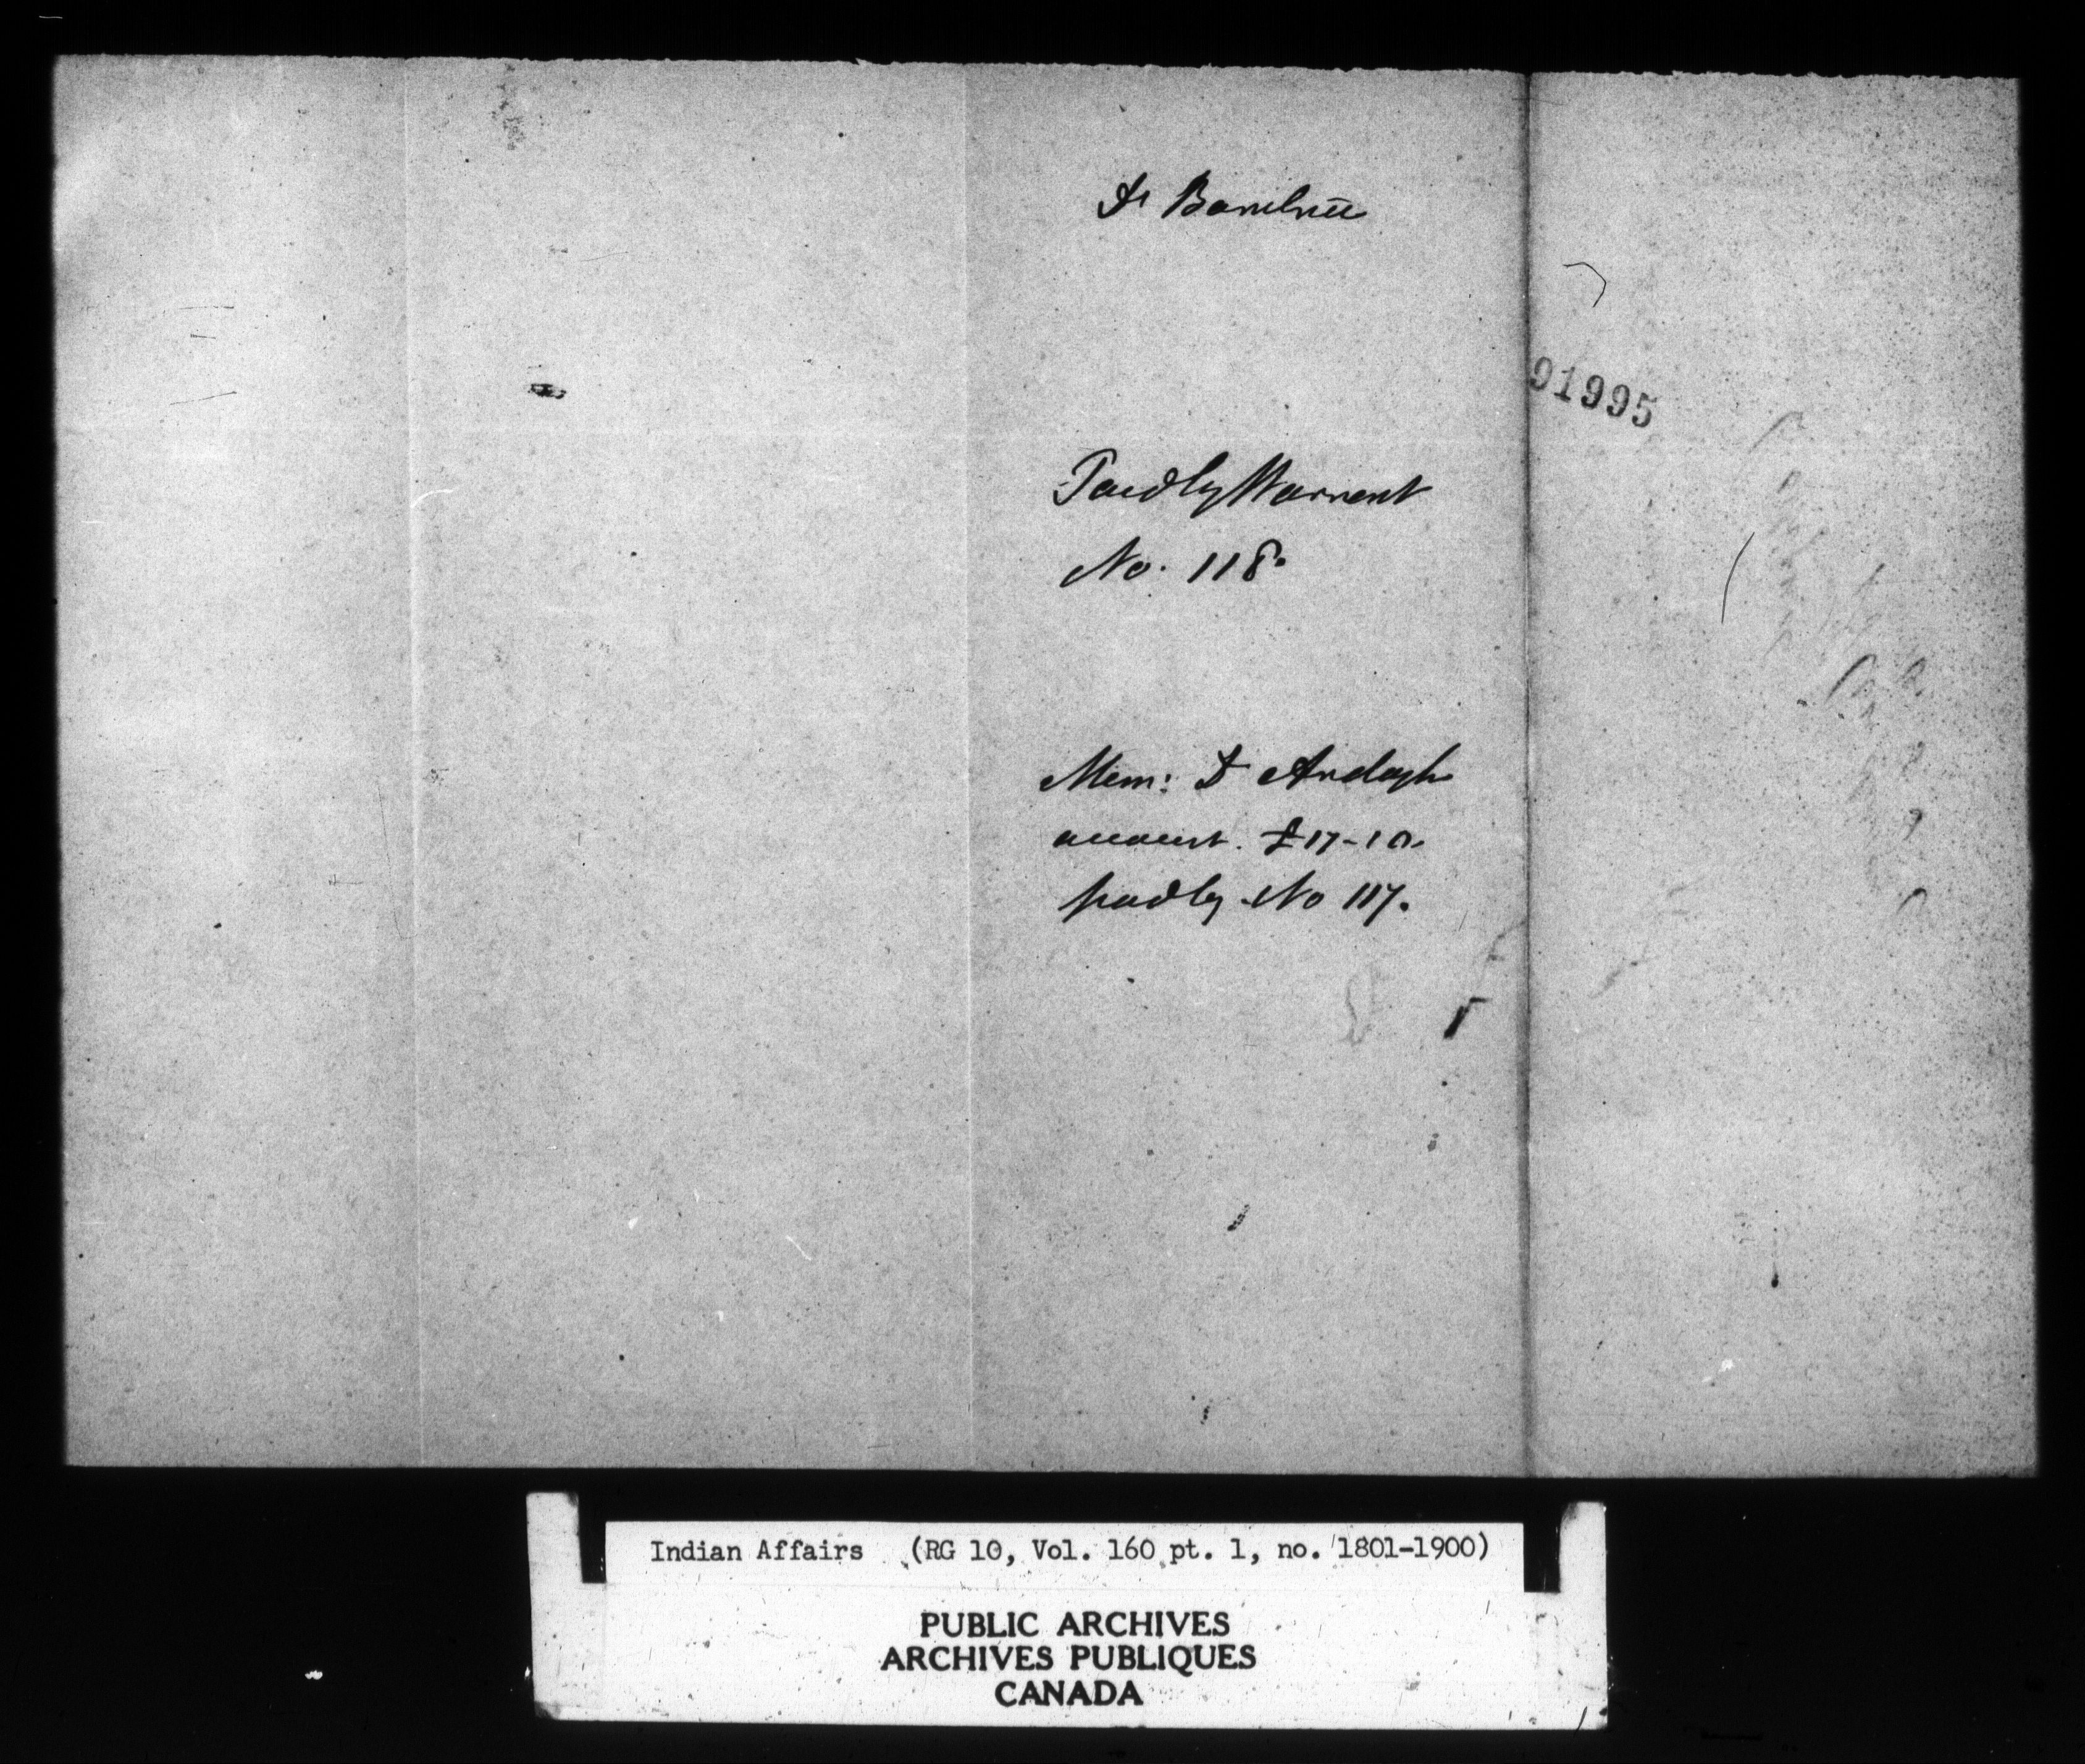 Dr
91995
Paid by Warrant
No. 118.
Mem: D Ardagh
account. £17-10.
paid by No 117.
Indian Affairs (RG 10, Vol. 160 pt. 1, no. 1801-1900)
PUBLIC ARCHIVES
ARCHIVES PUBLIQUES
CANADA